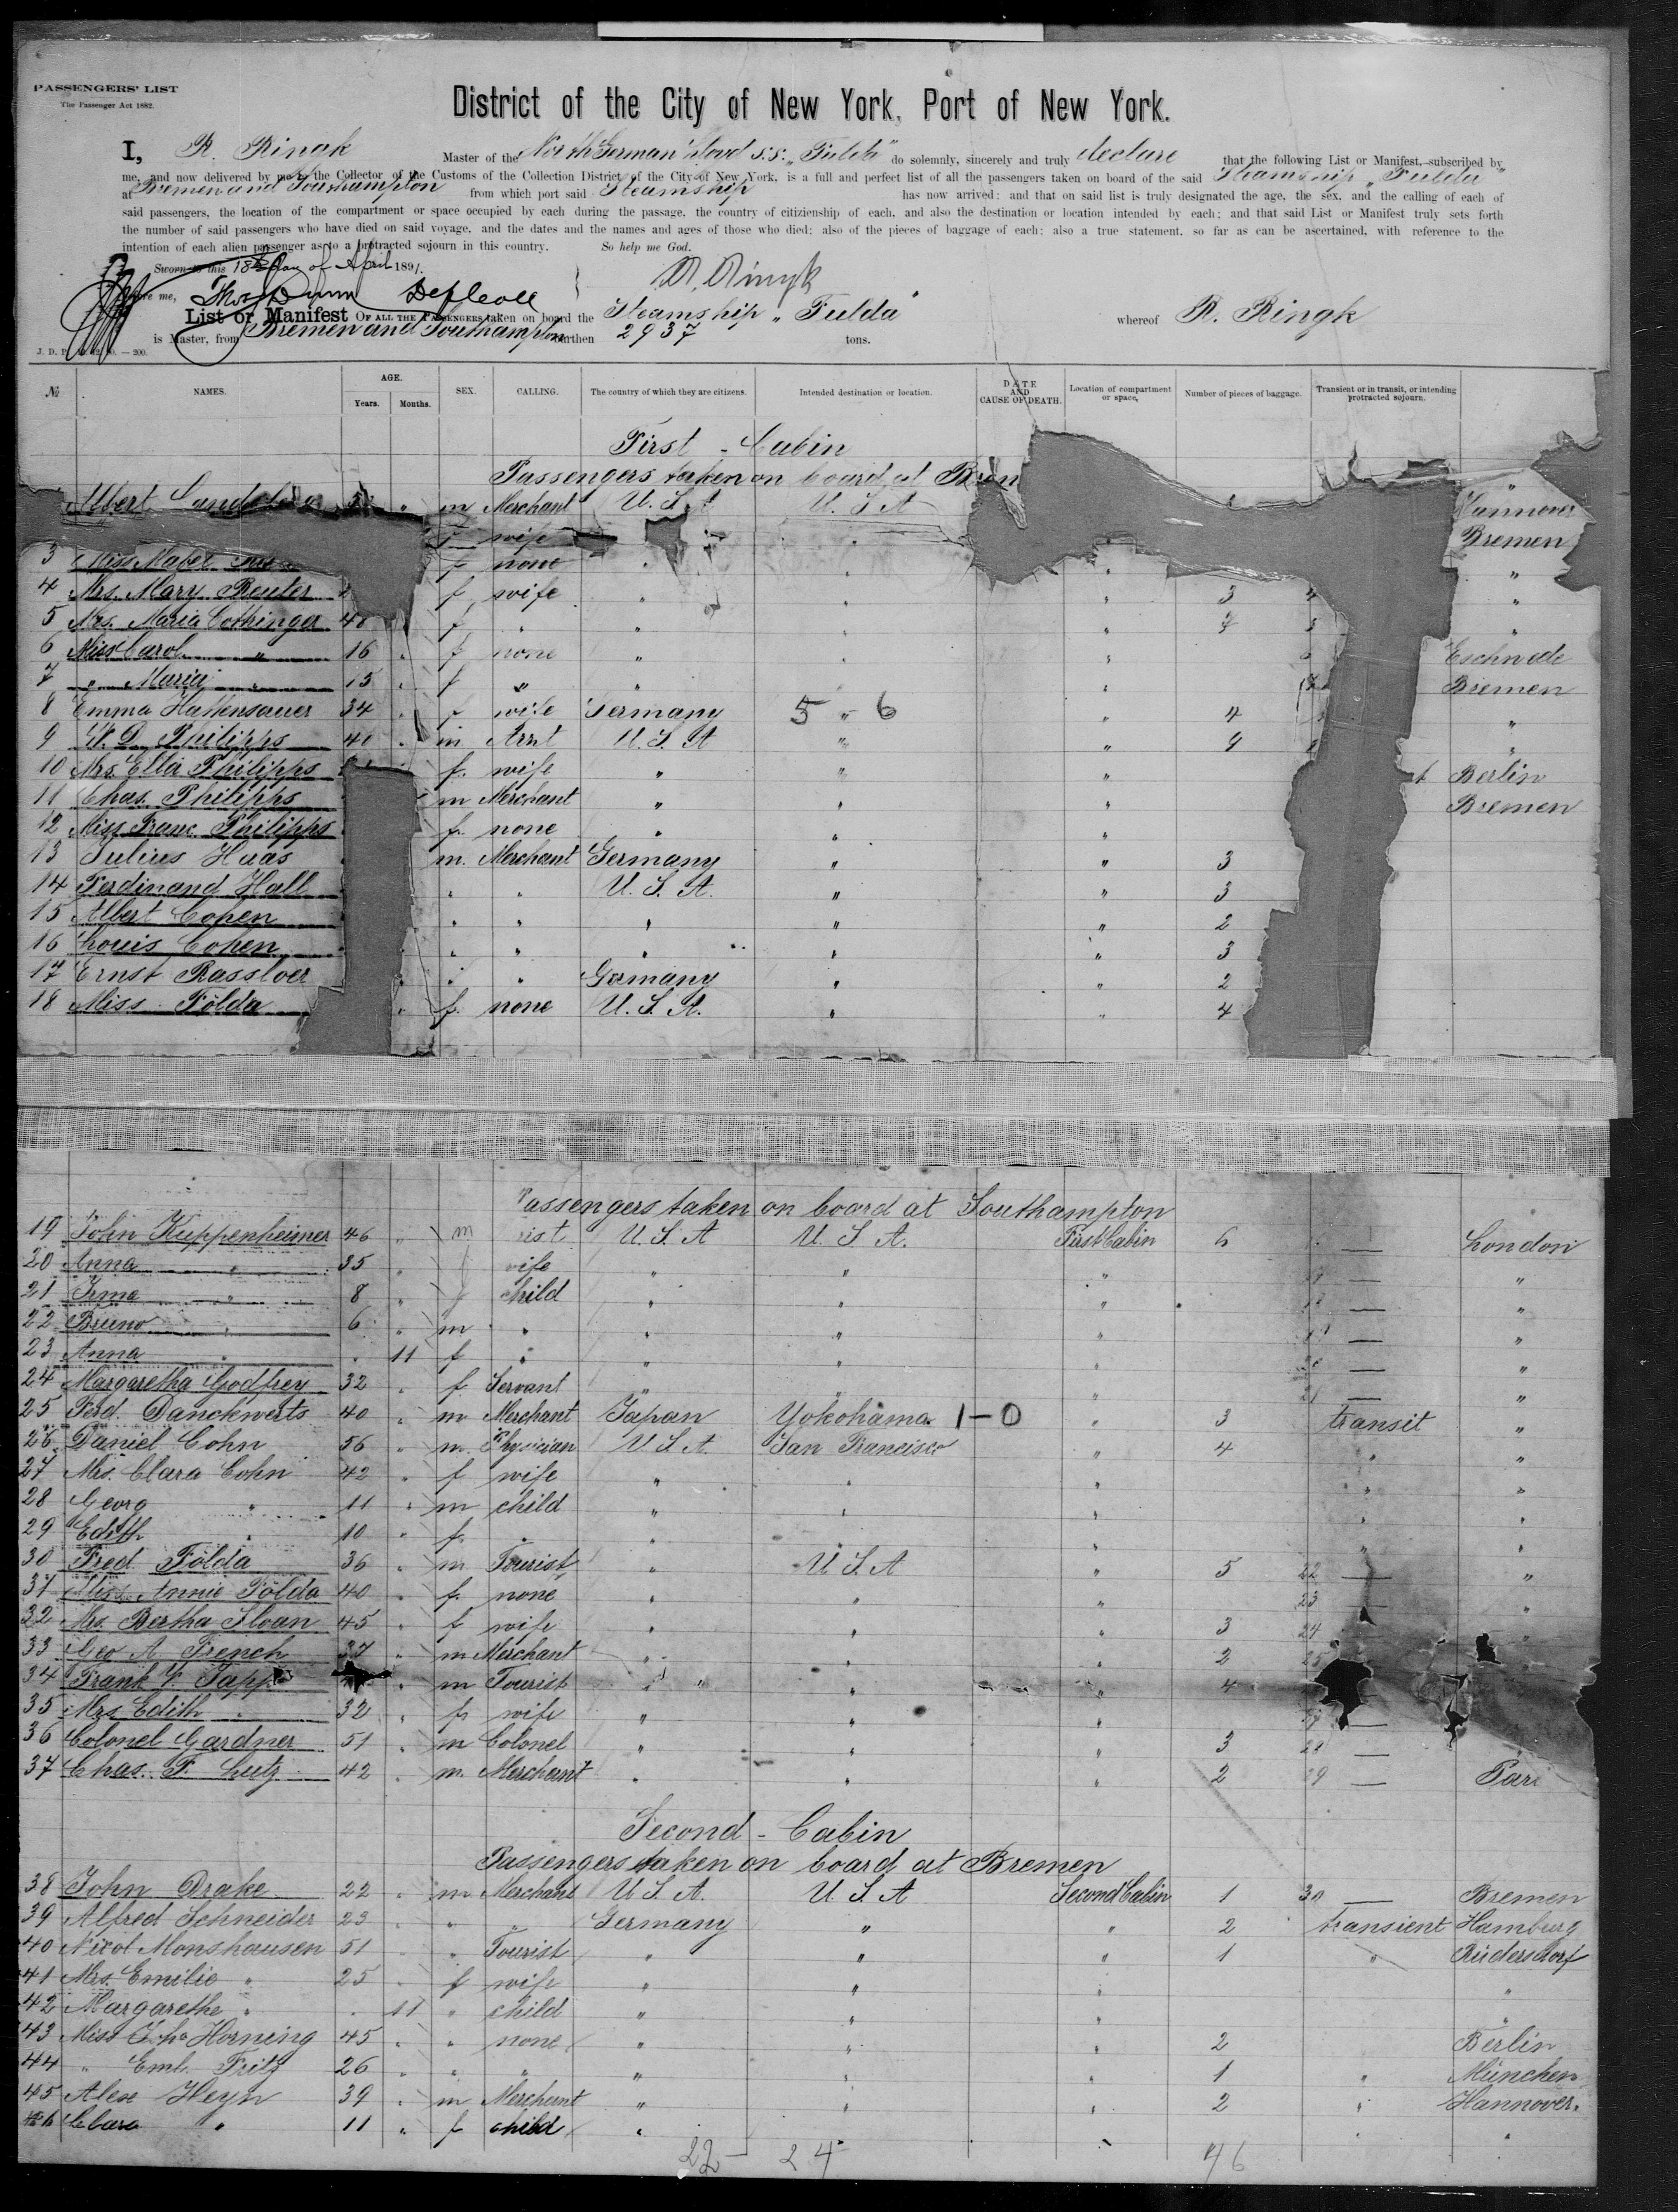 PASSENGERS' LIST
The Passenger Act 1882.
District of the City of New York, Port of New York.
I, R. Ringk Master of the North German Lloyd S.S. „Fulda" do solemnly, sincerely and truly declare that the following List or Manifest, subscribed by
me, and now delivered by me to the Collector of the Customs of the Collection District of the City of New York, is a full and perfect list of all the passengers taken on board of the said Steamship „Fulda"
at Bremen and Southampton from which port said Steamship has now arrived; and that on said list is truly designated the age, the sex, and the calling of each of
said passengers, the location of the compartment or space occupied by each during the passage, the country of citizienship of each, and also the destination or location intended by each; and that said List or Manifest truly sets forth
the number of said passengers who have died on said voyage, and the dates and the names and ages of those who died; also of the pieces of baggage of each; also a true statement, so far as can be ascertained, with reference to the
intention of each alien passenger as to a protracted sojourn in this country. So help me God.
Sworn to this 18th day of April 1891.
R. Ringk
me, Thos Dunn
List or Manifest OF ALL THE PASSENGERS taken on board the Steamship „Fulda" whereof R. Ringk
is Master, from Bremen and Southampton burthen 2937 tons.
№ NAMES. AGE. Years. Months. SEX. CALLING. The country of which they are citizens. Intended destination or location. DATE AND CAUSE OF DEATH. Location of compartment or space. Number of pieces of baggage. Transient or in transit, or intending protracted sojourn.
First - Cabin
Passengers taken on board at Brem
Albert m Merchant U.S.A U.S.A Hannover
f wife " Bremen
3 Miss Mabel f none " " "
4 Mrs. Mary Reuter f wife " " " 3 "
5 Mrs. Maria Cothinger 40 f " " " " "
6 Miss Carol " 16 " f none " " " Eschwede
7 " Maria " 15 " f " " " " Bremen
8 Emma Hattensauer 34 " f wife Germany 5 " 6 " 4 "
9 W. D. Philipps 40 " m U.S.A " " 9 "
10 Mrs. Ella Philipps f. wife " " " t Berlin
11 Chas. Philipps m Merchant " " " Bremen
12 Miss Franc. Philipps f. none " " "
13 Julius Haas m. Merchant Germany " " 3
14 Ferdinand Hall " " U.S.A. " " 3
15 Albert Cohen " " " " " 2
16 Louis Cohen " " " " " 3
17 Ernst Rassloer " " " Germany " " 2
18 Miss Földa " f. none U.S.A. " " 4
Passengers taken on board at Southampton
19 John Kuppenheimer 46 " m rist U.S.A U.S.A. First Cabin 6 — London
20 Anna " 35 " f wife " " " — "
21 Irma " 8 " f child " " " — "
22 Bruno " 6 " m " " " " — "
23 Anna " " 11 f " " " " — "
24 Margaretha Godfrey 32 " f. Servant " " " 21 — "
25 Ferd. Danckwerts 40 " m Merchant Japan Yokohama 1-0 " 3 transit "
26 Daniel Cohn 56 " m. Physician U.S.A. San Francisco " 4 " "
27 Mrs. Clara Cohn 42 " f wife " " " " "
28 Georg " 11 " m child " " " " "
29 Edith " 10 " f. " " " " " "
30 Fred Földa 36 " m Tourist " U.S.A " 5 22 — "
31 Miss Annie Földa 40 " f. none " " " 23 — "
32 Mrs. Bertha Sloan 45 " f wife " " " 3 24 "
33 Geo A. French 37 " m Merchant " " " 2 25
34 Frank V. Tapp " m Tourist " " " 4
35 Mrs Edith " 32 " f. wife " " " 27 —
36 Colonel Gardner 51 " m Colonel " " " 3 28 —
37 Chas. F. Lutz 42 " m. Merchant " " " 2 29 — Pari
Second - Cabin
Passengers taken on board at Bremen
38 John Drake 22 " m Merchant U.S.A. U.S.A Second Cabin 1 30 — Bremen
39 Alfred Schneider 23 " " " Germany " " 2 transient Hamburg
40 Nicol Monshausen 51 " " Tourist " " " 1 " Rüdersdorf
41 Mrs. Emilie " 25 " f wife " " " "
42 Margarethe " " 11 " child " " " "
43 Miss Horning 45 " " none " " " 2 Berlin
44 " Emb. Fritz 26 " " " " " " 1 " München
45 Alex Heyn 39 " m Merchant " " " 2 " Hannover.
46 Clara " 11 " f child " " " "
22 - 24 46